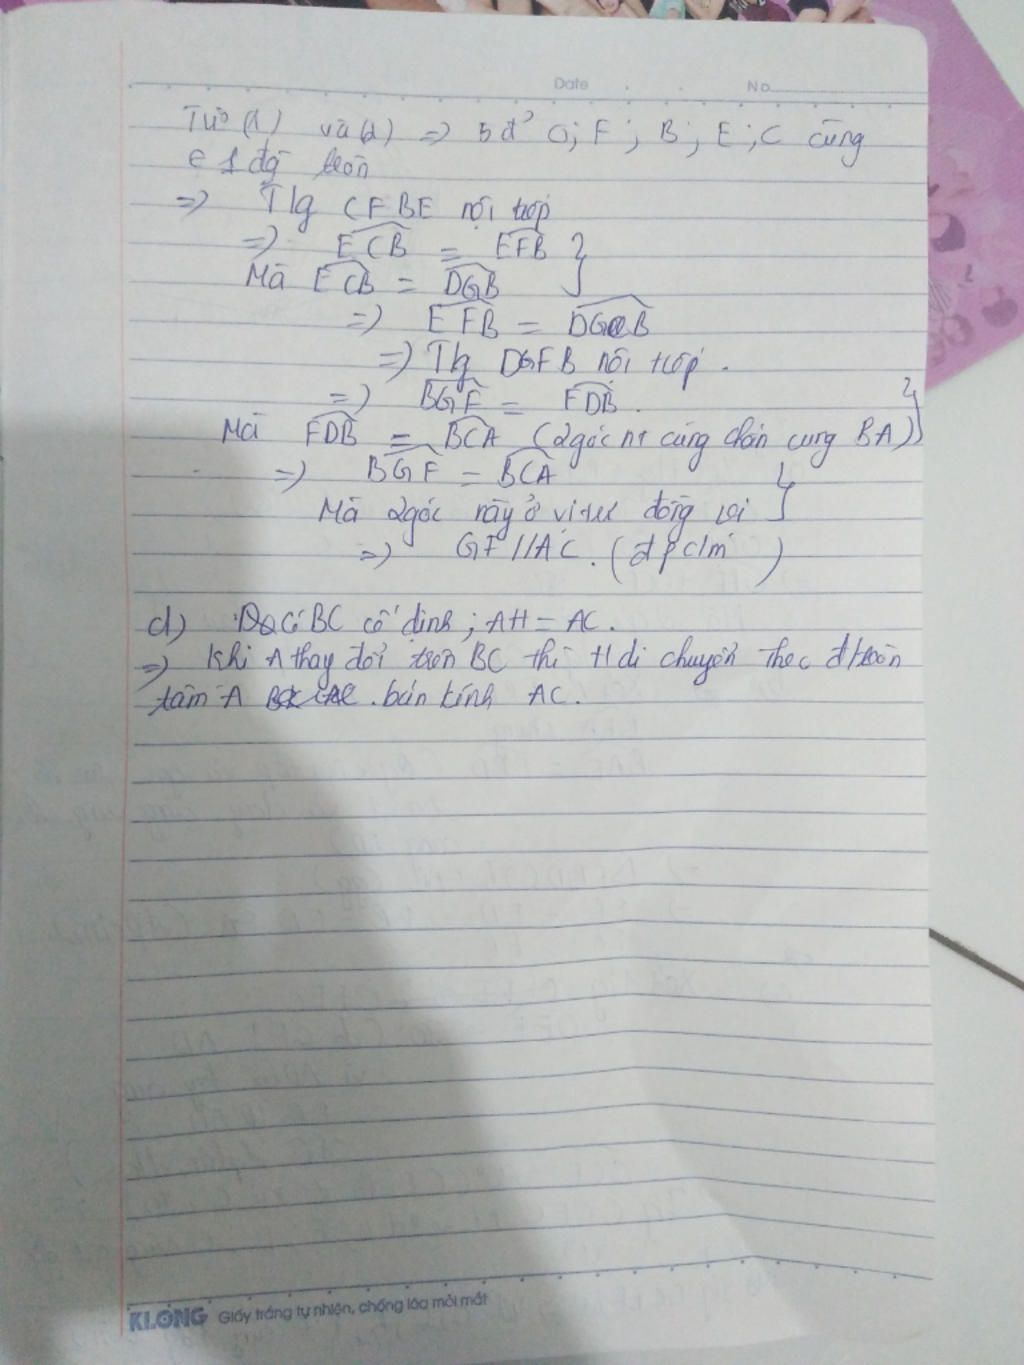 Date No
Từ (1) và (2) => 5 đ' O; F; B; E; C cùng
€ 1 đg tròn
=> T/g CFBE nội tiếp
=> ECB = EFB }
Mà ECB = DGB
=> EFB = DGB
=> T/g DGFB nội tiếp.
=> BGF = FDB.
Mà FDB = BCA (2góc nt cùng chắn cung BA) }
=> BGF = BCA
Mà 2góc này ở vị trí đồng vị }
=> GF//AC. (đpc/m)
d) Do có BC cố định; AH = AC.
=> Khi A thay đổi trên BC thì H di chuyển theo đ/tròn
tâm A bán kính AC.
KLONG Giấy trắng tự nhiên, chống lóa mỏi mắt